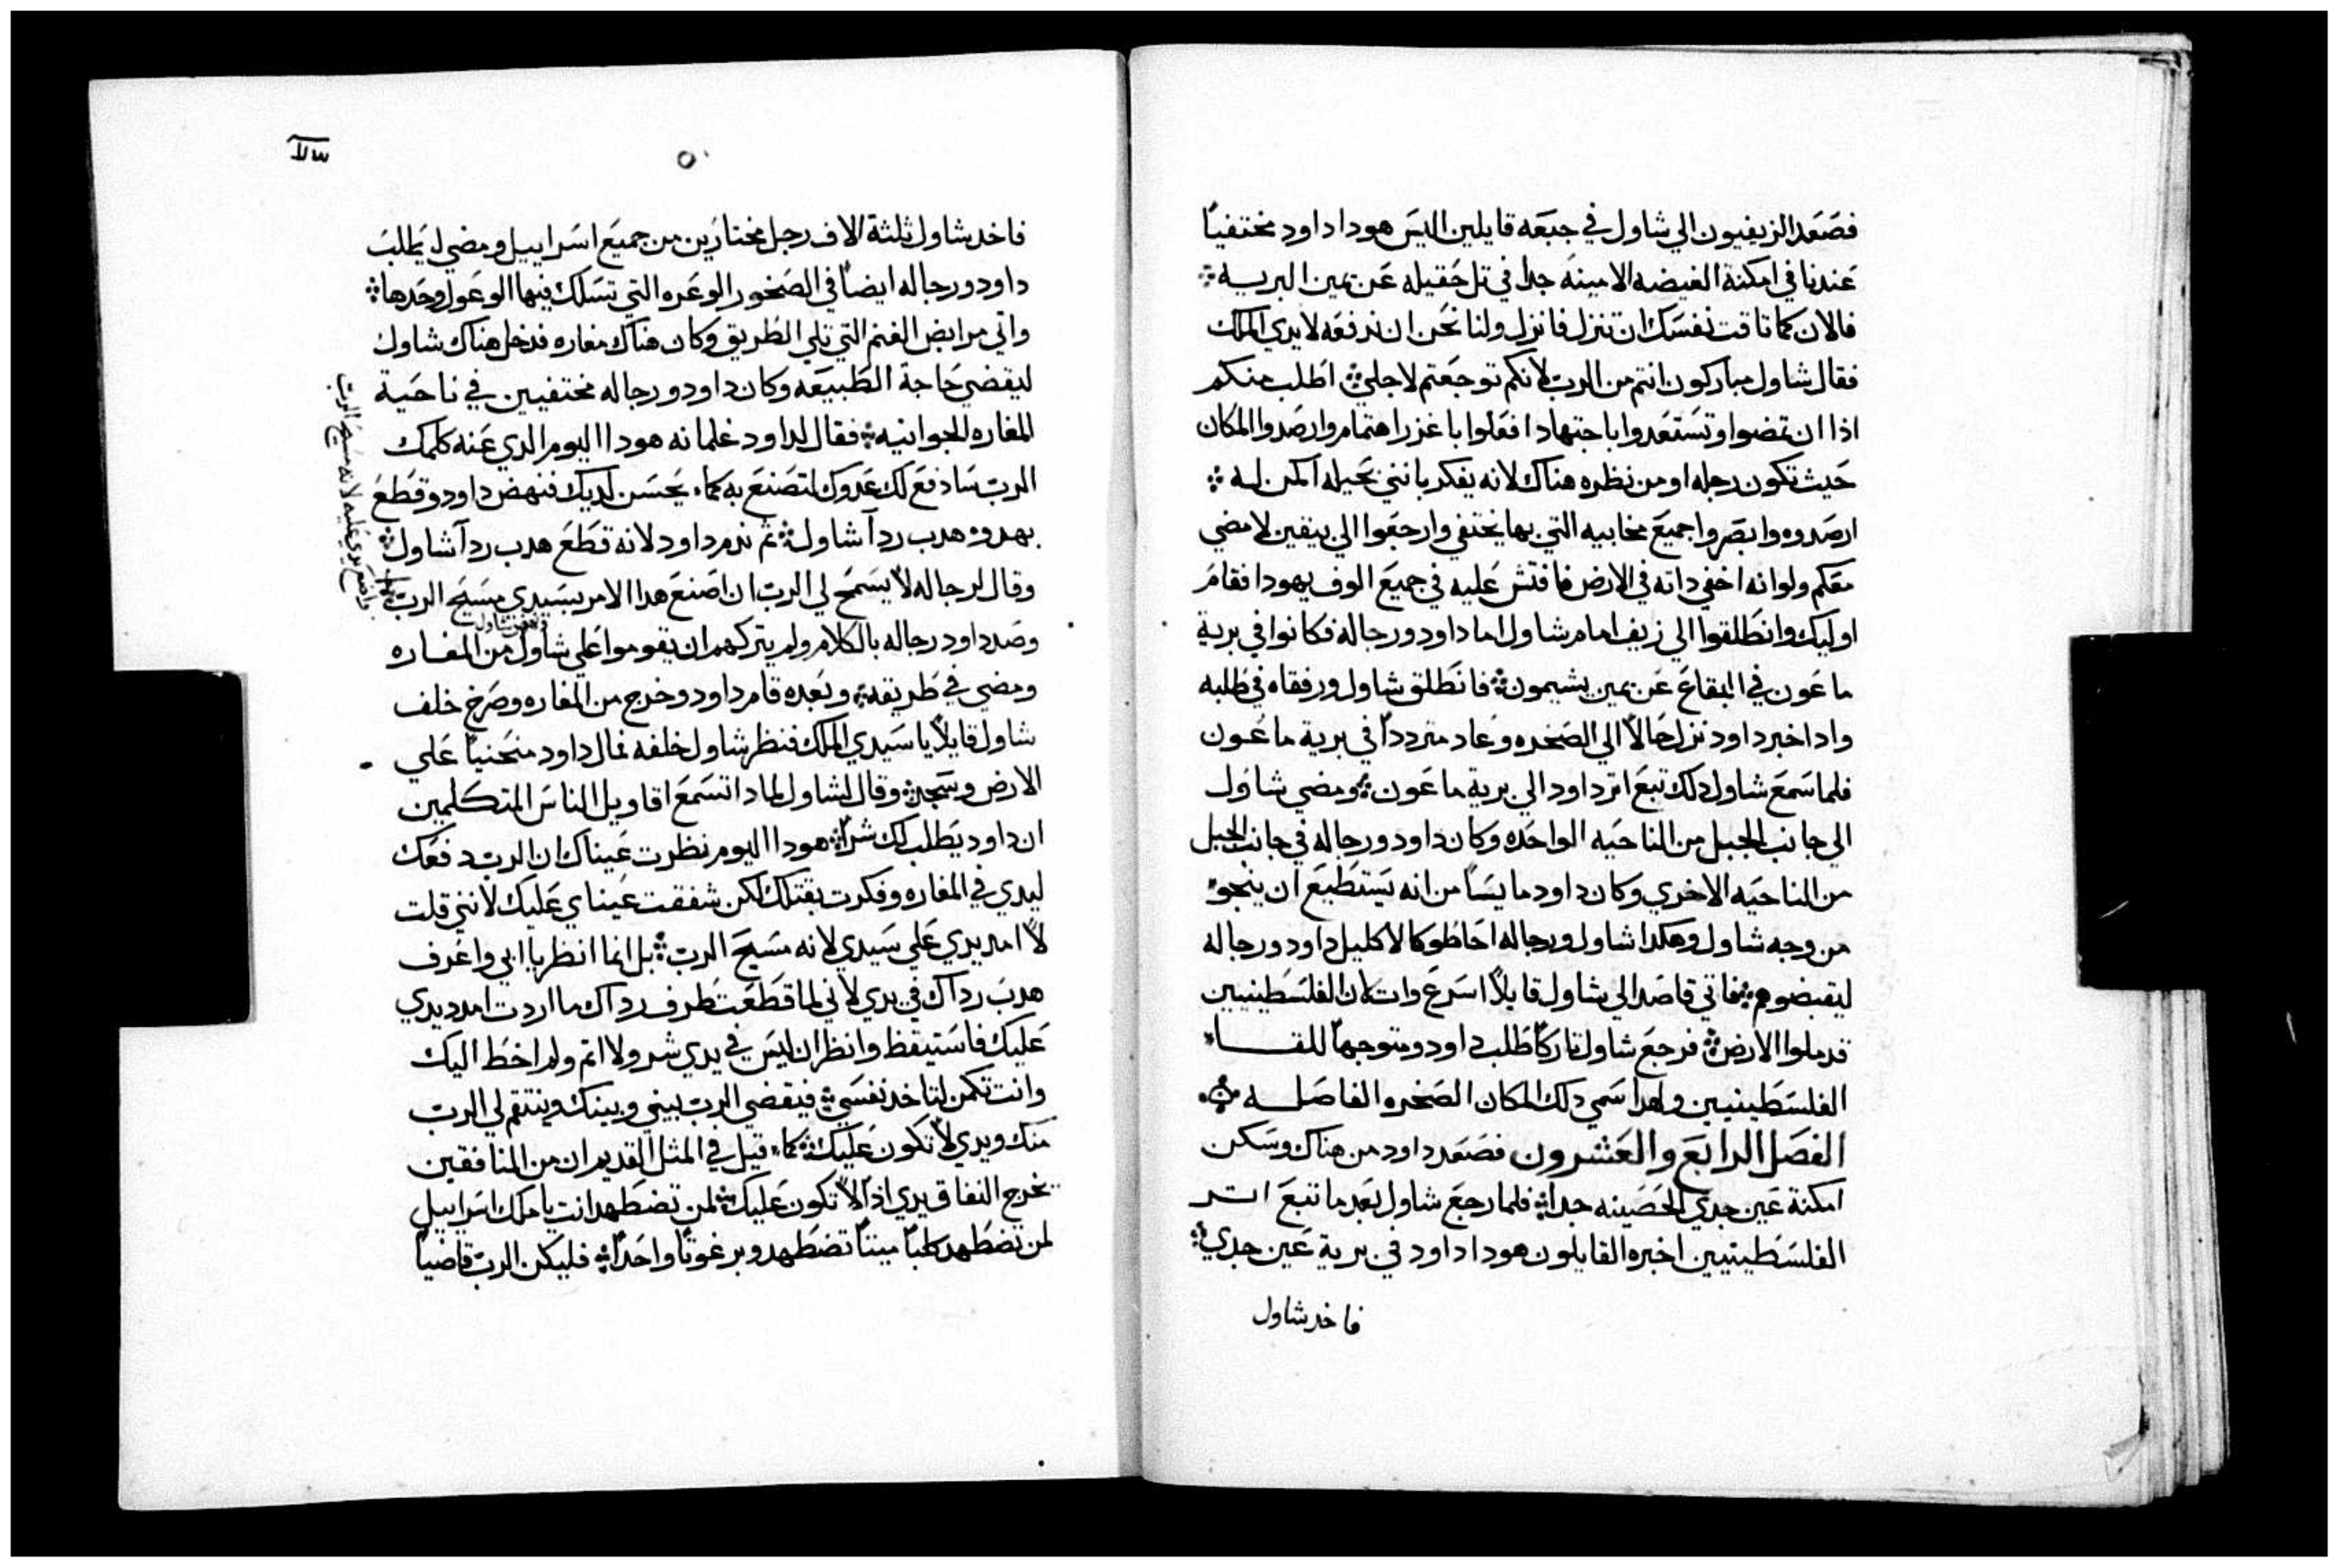 فصَعَد الزيفيون الي شاول في جبَعَه قايلين اليسَ هودا داود مختفياً
عَندنا في امكنة الغيضه الامينه جداً في تل حَقيله عَن يمين البريه
فالان كما تاقت نفسَك ان تنزل فانزل ولنا نَحن ان ندفعَه لايدي الملك
فقال شاول مباركون انتم من الرب لانكم توجعَتم لاجلي اطلب منكم
اذا ان تمضوا وتسَتعَدوا باجتهاد افعَلوا باغزر اهتمام وارصَدوا المكان
حَيث تكون رجله او من نظره هناك لانه يفكر بانني بحَيله اكمن له
ارصَدوه وابصَروا جميعَ مخابيه التي بها يختفي وارجعَوا الي بيقين لامضي
معَكم ولو انه اخفي داته في الارض فافتش عَليه في جميعَ الوف يهودا فقامَ
اوليك وانطَلقوا الي زيف امام شاول اما داود ورجاله فكانوا في برية
ماعَون في البقاعَ عَن يمين يشيمون فانطَلق شاول ورفقاه في طَلبه
وادا خبر داود نزل حَالاً الي الصَخره وعَاد متردداً في برية ماعَون
فلما سَمعَ شاول دلك تبعَ اتر داود الي برية ماعَون ومضي شاول
الي جانب الجبل من الناحَيه الواحَده وكان داود ورجاله في جانب الجبل
من الناحَيه الاخري وكان داود مايسَاً من انه يسَتطَيعَ ان ينجو
من وجه شاول وهكدا شاول ورجاله احَاطوا كالاكليل داود ورجاله
ليقبضوهم فاتي قاصَد الي شاول قايلاً اسَرعَ وات لان الفلسَطَينيين
قد ملوا الارض فرجعَ شاول تاركاً طَلب داود ومتوجهاً للقا
الفلسَطَينيين ولهدا سَمي دلك المكان الصَخره الفاصَله
الفصَل الرابعَ والعَشرون فصَعَد داود من هناك وسَكن
امكنة عَين جدي الحَصَينه جداً فلما رجعَ شاول بعَد ما تبعَ اتر
الفلسَطَينيين اخبره القايلون هودا داود في برية عَين جدي
فاخد شاول
٥
فاخد شاول ثلثة الاف رجل مختارين من جميعَ اسَراييل ومضي ليطَلب
داود ورجاله ايضاً في الصَخور الوعَره التي تسَلك فيها الوعَول وحَدها
واتي مرابض الغنم التي تلي الطَريق وكان هناك مغاره فدخل هناك شاول
ليقضي حَاجة الطَبيعَه وكان داود ورجاله مختفيين في ناحَية
المغاره الجوانيه فقال لداود غلمانه هودا اليوم الدي عَنه كلمك
الرب سَادفعَ لك عَدوك لتصَنعَ به كما يحَسَن لديك فنهض داود وقطَعَ
بهدوه هدب ردآ شاول ثم ندم داود لانه قطَعَ هدب ردآ شاول
وقال لرجاله لا يسَمحَ لي الرب ان اصَنعَ هدا الامر بسَيدي مسَيحَ الرب
واضعَ يدي عَليه لانه مسَيحَ الرب
وصَد داود رجاله بالكلام ولم يتركهم ان يقوموا عَلي شاول من المغاره
ونهض شاول
ومضي في طَريقه وبعَده قام داود وخرج من المغاره وصَرخ خلف
شاول قايلاً يا سَيدي الملك فنظر شاول خلفه فمال داود منحَنياً عَلي
الارض وسَجد وقال لشاول لمادا تسَمعَ اقاويل الناسَ المتكلمين
ان داود يطَلب لك شراً هودا اليوم نظرت عَيناك ان الرب دفعَك
ليدي في المغاره وفكرت بقتلك لكن شفقت عَيناي عَليك لانني قلت
لا امد يدي عَلي سَيدي لانه مسَيحَ الرب بل انما انظر يا ابي واعَرف
هدب رداك في يدي لاني لما قطَعَت طَرف رداك ما اردت امدد يدي
عَليك فاسَتيقظ وانظر ان ليسَ في يدي شر ولا اتم ولم اخطَ اليك
وانت تكمن لتاخد نفسَي فيقضي الرب بيني وبينك وينتقم لي الرب
منك ويدي لا تكون عَليك كما قيل في المثل القديم ان من المنافقين
يخرج النفاق يدي اذاً لا تكون عَليك لمن تضطَهد انت يا ملك اسَراييل
لمن تضطَهد كلباً ميتاً تضطَهد وبرغوتاً واحَداً فليكن الرب قاضياً